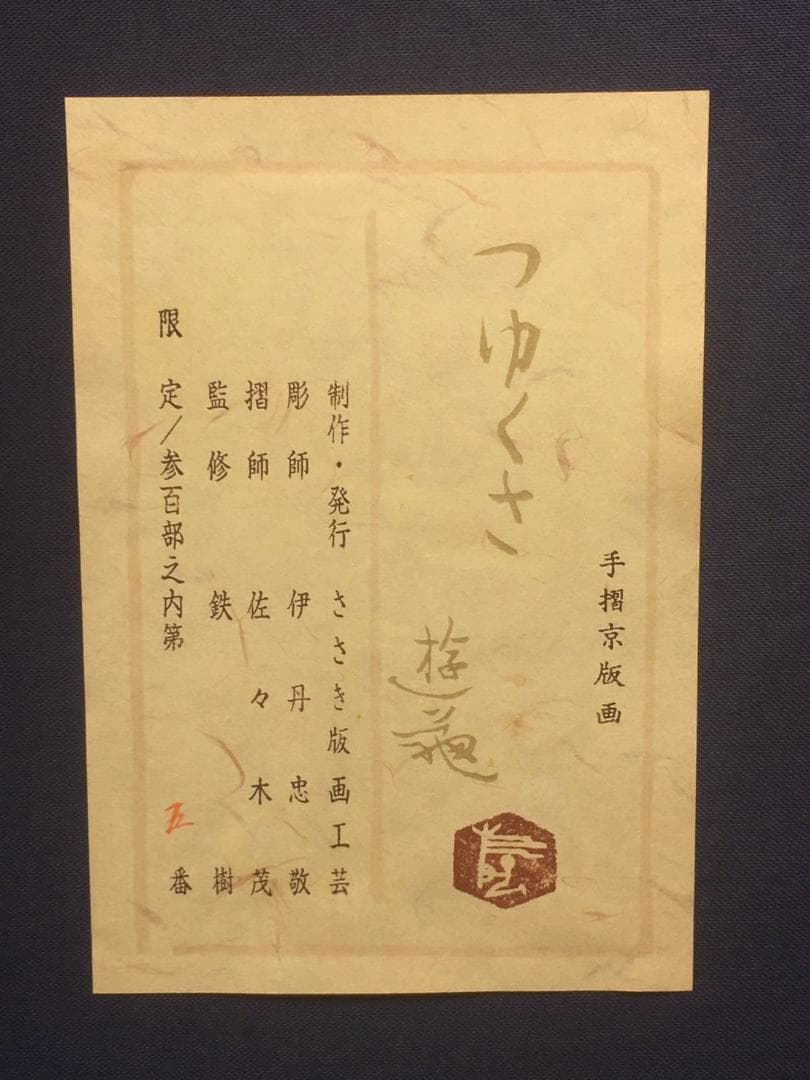 手摺京版画
つゆくさ
制作・発行 ささき版画工芸
彫師 伊丹忠敬
摺師 佐々木茂
監修 鉄樹
限定/参百部之内第五番